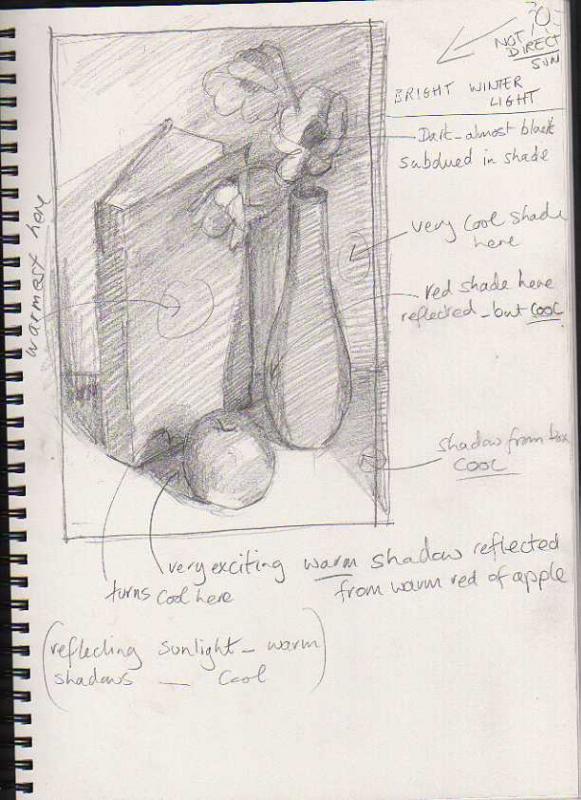 NOT
DIRECT
SUN
BRIGHT WINTER
LIGHT
Dark_almost black
subdued in shade
very cool shade
here
red shade here
reflected_but cool
warmest here
shadow from box
COOL
very exciting warm shadow reflected
from warm red of apple
turns cool here
(reflecting sunlight_warm
shadows _ Cool)